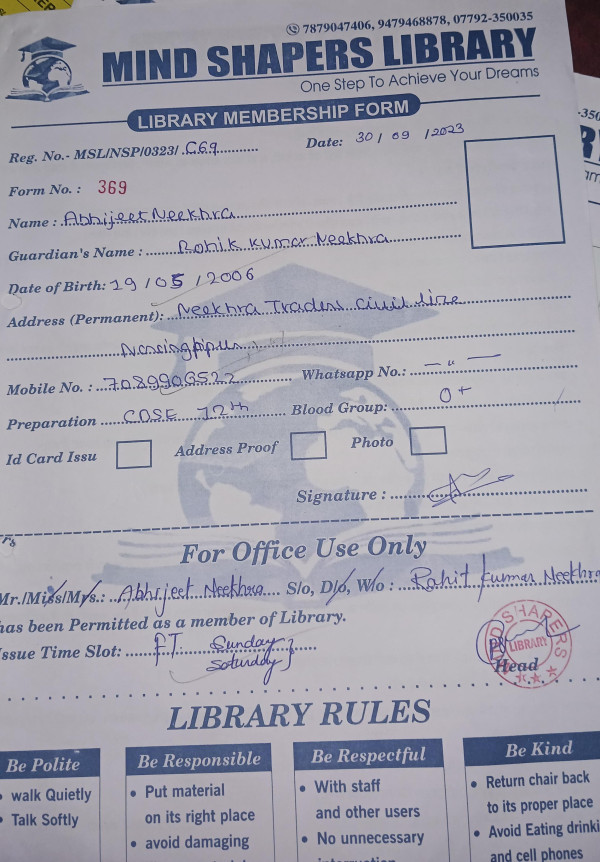 7879047406, 9479468878, 07792-350035
MIND SHAPERS LIBRARY
One Step To Achieve Your Dreams
LIBRARY MEMBERSHIP FORM
Reg. No.- MSL/NSP/0323/ C69 Date: 30 / 09 / 2023
Form No. : 369
Name : Abhijeet Neekhra
Guardian's Name : Rohik Kumar Neekhra
Date of Birth: 19 / 05 / 2006
Address (Permanent): Neekhra Traders civil line
Narsinghpur
Mobile No. : 7089906522 Whatsapp No.: — " —
Preparation CDSE 12th Blood Group: O+
Id Card Issu Address Proof Photo
Signature :
For Office Use Only
Mr./Miss/Mrs.: Abhijeet Neekhra S/o, D/o, W/o : Rohit Kumar Neekhra
has been Permitted as a member of Library.
Issue Time Slot: F.T. Sunday
Saturday }
MIND SHAPERS
LIBRARY
Head
LIBRARY RULES
Be Polite Be Responsible Be Respectful Be Kind
• walk Quietly • Put material • With staff • Return chair back
• Talk Softly on its right place and other users to its proper place
• avoid damaging • No unnecessary • Avoid Eating drinki
and cell phones